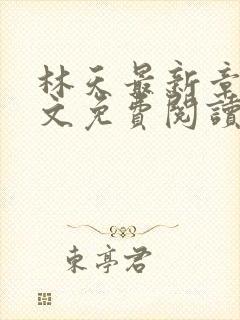 林天最新章
文免費閱讀
東亭君